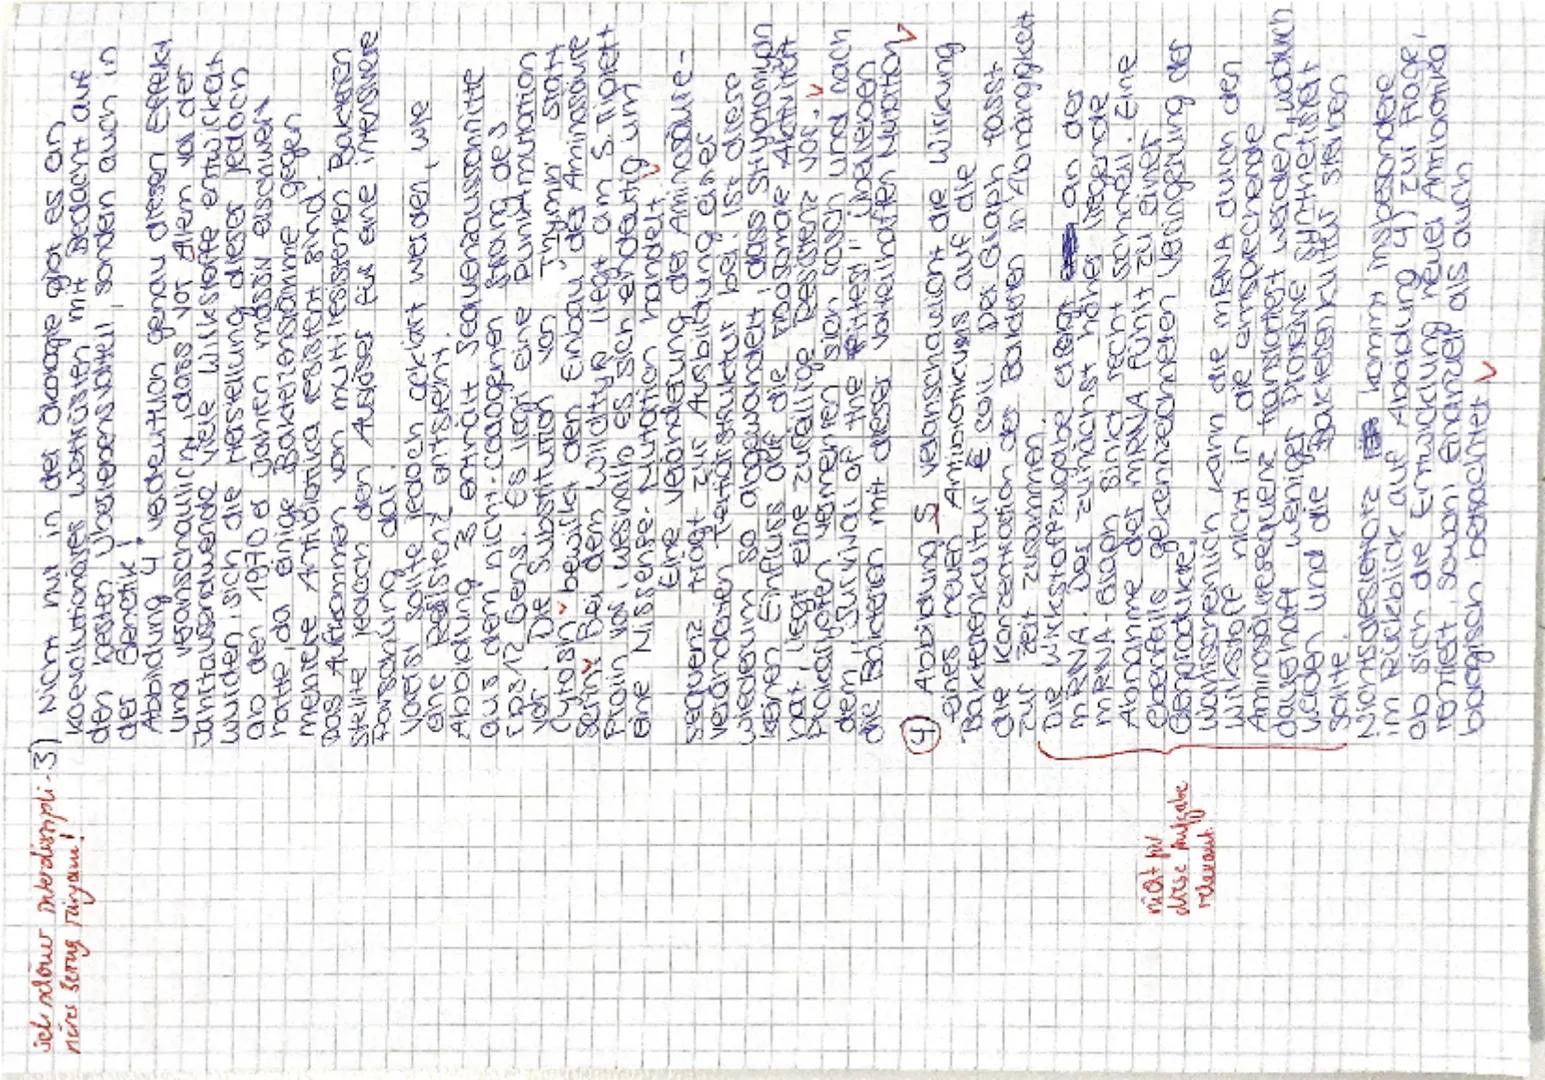 sehr schöner interdiszipli-
närer Bezug
3) Nicht nur in der Ökologie gibt es ein
koevolutionäres Wettrüsten mit Bedacht auf
den besten Überlebensvorteil, sondern auch in
der Genetik!
Abbildung 4 verdeutlicht genau diesen Effekt
und veranschaulicht, dass vor allem vor der
Jahrtausendwende viele Wirkstoffe entwickelt
wurden, sich die Herstellung dieser jedoch
ab den 1970er Jahren massiv erschwert
hatte, da einige Bakterienstämme gegen
mehrere Antibiotika resistent sind.
Das Aufkommen von multiresistenten Bakterien
stellte jedoch den Auslöser für eine intensivere
Forschung dar.
Vorerst sollte jedoch geklärt werden, wie
eine Resistenz entsteht.
Abbildung 3 enthält Sequenzausschnitte
aus dem nicht-codogenen Strang des
rps12 Gens. Es liegt eine Punktmutation
vor. Die Substitution von Thymin statt
Cytosin bewirkt den Einbau der Aminosäure
Bei dem Wildtyp liegt am 5. Triplett
vor, weshalb es sich eindeutig um
eine Missense-Mutation handelt.
Eine Veränderung der Aminosäure-
sequenz trägt zur Ausbildung einer
veränderten Tertiärstruktur bei. Ist diese
wiederum so abgewandelt, dass Streptomycin
keinen Einfluss auf die ribosomale Aktivität
hat, liegt eine zufällige Resistenz vor.
Prokaryoten vermehren sich rasch und nach
dem "Survival of the Fittest" überleben
die Bakterien mit dieser vorteilhaften Mutation
4) Abbildung 5 veranschaulicht die Wirkung
eines neuen Antibiotikums auf die
Bakterienkultur E. coli. Der Graph fasst
die Konzentration der Bakterien in Abhängigkeit
zur Zeit zusammen.
Die Wirkstoffzugabe erfolgt an der
mRNA. Der zunächst höher liegende
mRNA-Graph sinkt recht schnell. Eine
Abnahme der mRNA führt zu einer
ebenfalls gekennzeichneten Verringerung der
Genprodukte.
Wahrscheinlich kann die mRNA durch den
Wirkstoff nicht in die entsprechende
Aminosäuresequenz translatiert werden, wodurch
dauerhaft weniger Proteine synthetisiert
werden und die Bakterienkultur sterben
sollte.
nicht für
diese Aufgabe
relevant
Nichtsdestotrotz kommt insbesondere
im Rückblick auf Abbildung 4 zur Frage,
ob sich die Entwicklung neuer Antibiotika
rentiert, sowohl finanziell als auch
biologisch betrachtet